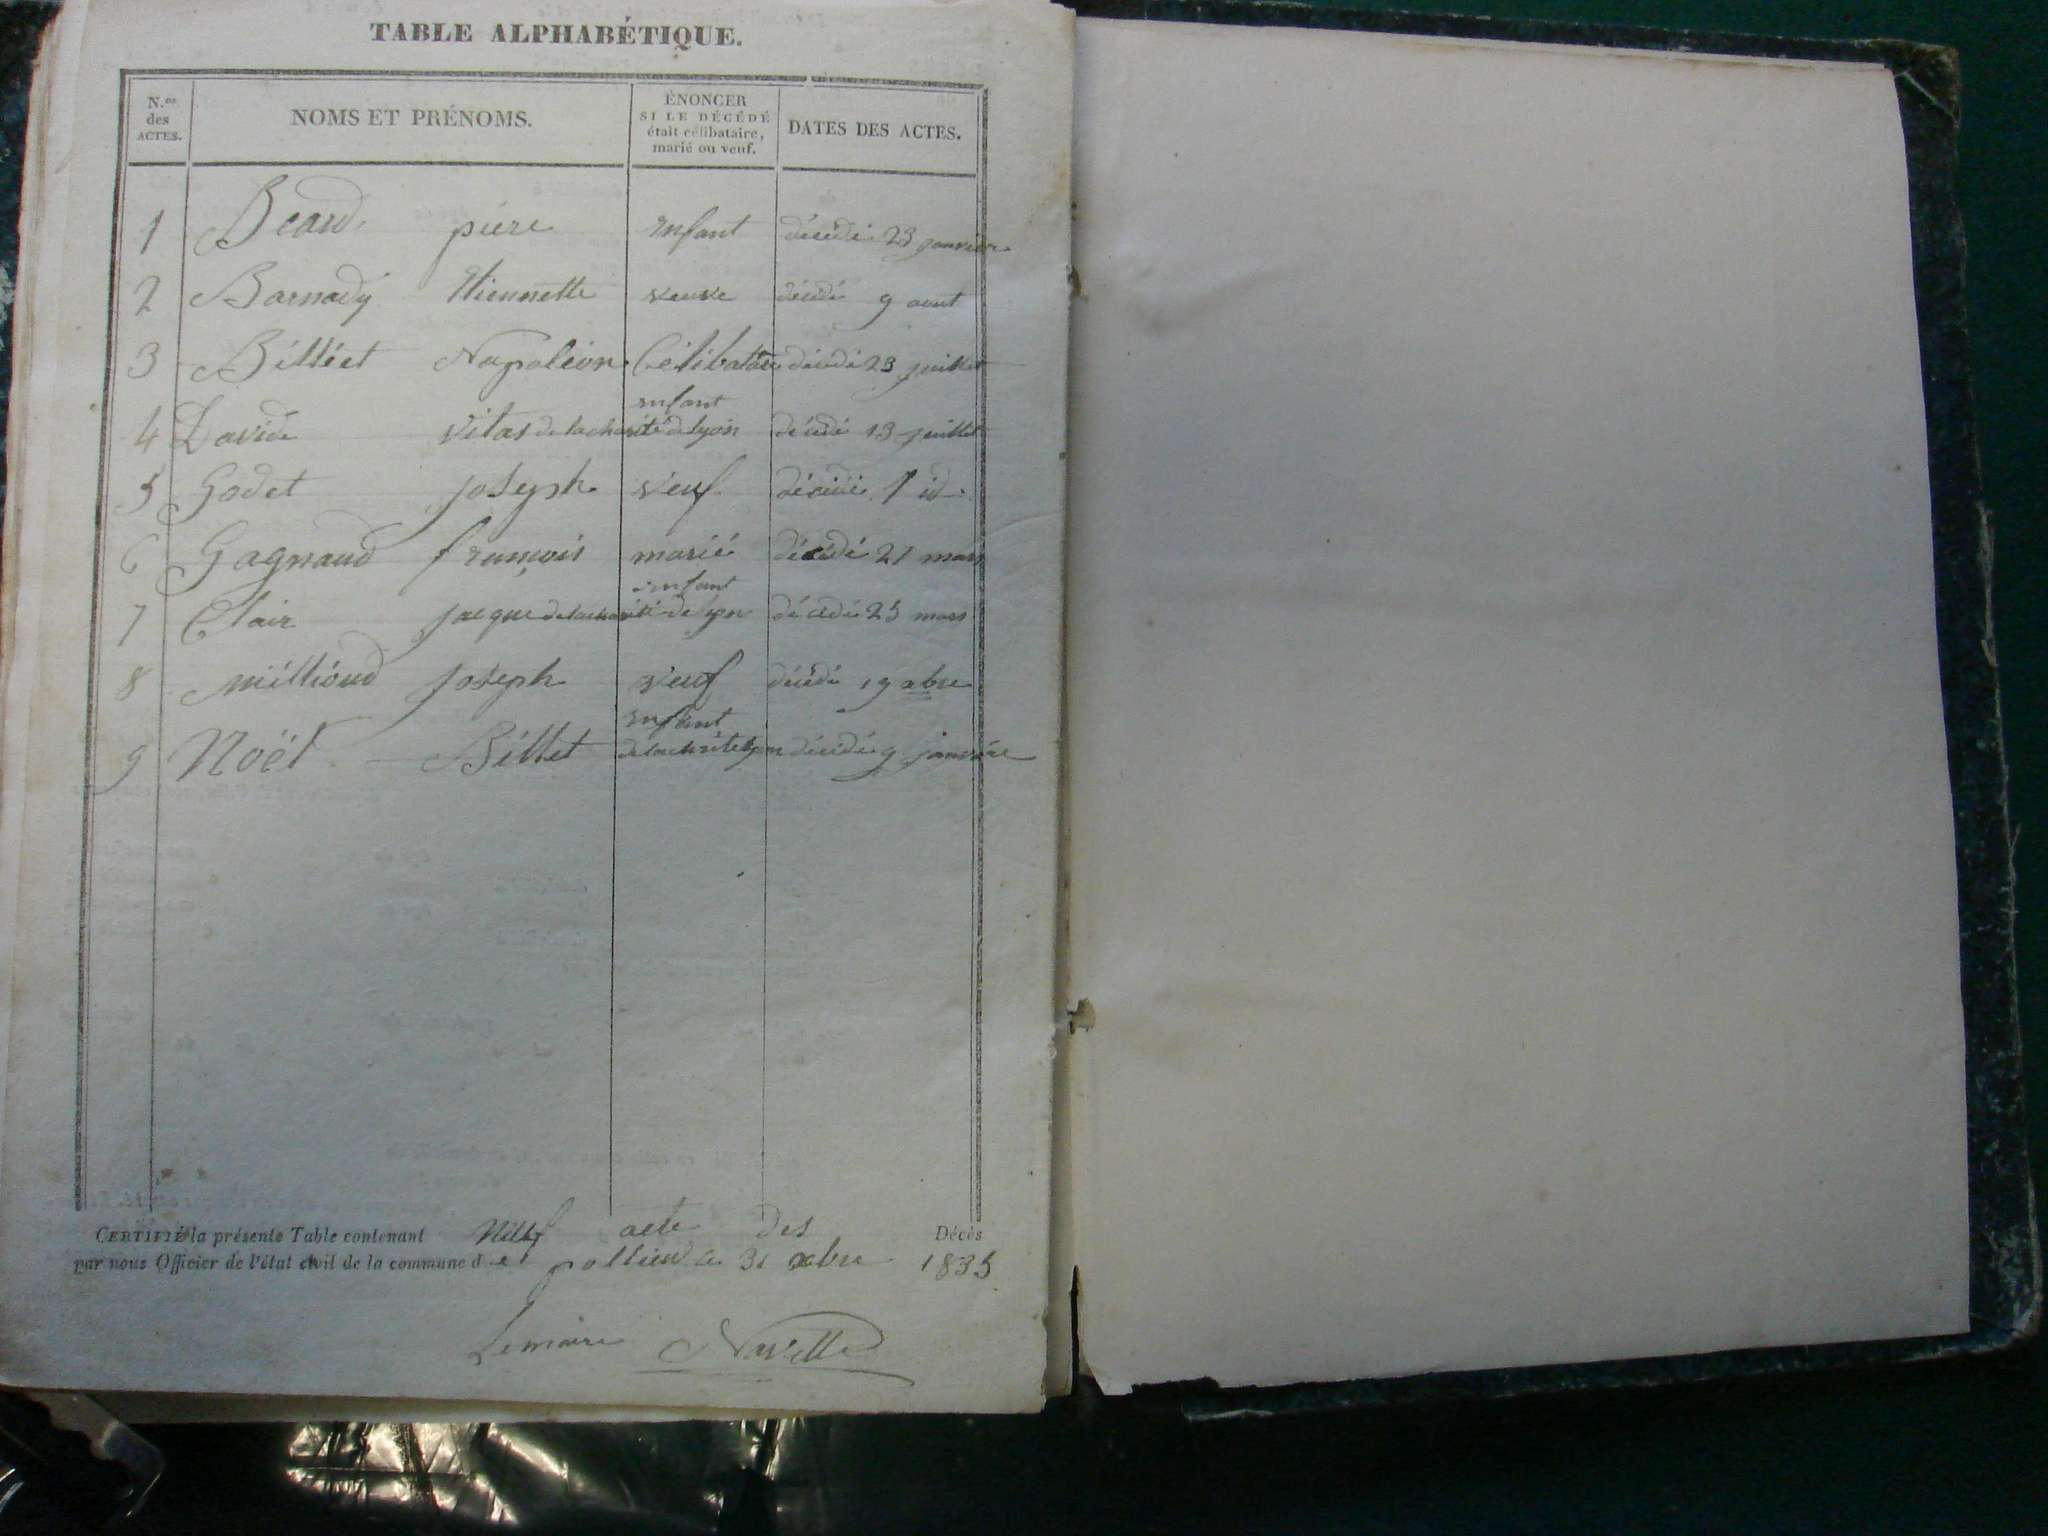 TABLE ALPHABÉTIQUE.
N.os des ACTES. NOMS ET PRÉNOMS. ÉNONCER SI LE DÉCÉDÉ était célibataire, marié ou veuf. DATES DES ACTES.
1 Beaud piere enfant décédé 23 janvier
2 Barnady Etiennette veuve décédé 9 aout
3 Billiet Napoléon Célibataire décédé 23 juillet
4 David vitas de la charité de lyon enfant décédé 13 juillet
5 Godet joseph veuf décédé 1 id.
6 Gagnaud françois marié décédé 21 mars
7 Clair jacque de la charité de lyon enfant décédé 25 mars
8 millioud joseph veuf décédé 19 xbre
9 Noël Billet enfant de la charité lyon décédé 9 janvier
CERTIFIÉ la présente Table contenant Neuf acte des Décès
par nous Officier de l'état civil de la commune de pollieu le 31 xbre 1835
Lemaire Navelle